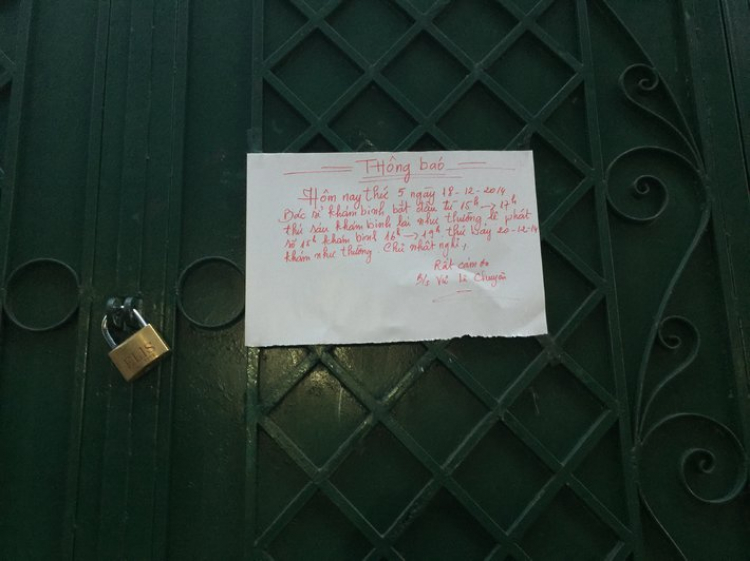 Thông báo
Hôm nay thứ 5 ngày 18-12-2014
Bác sĩ khám bình bắt đầu từ 15h → 17h
thứ sáu khám bình lại như thường lệ phát
số 15h khám bình 16h → 19h thứ bảy 20-12-14
khám như thường. Chủ nhật nghỉ,
Rất cảm ơn
B/s Vũ Lê Chuyên